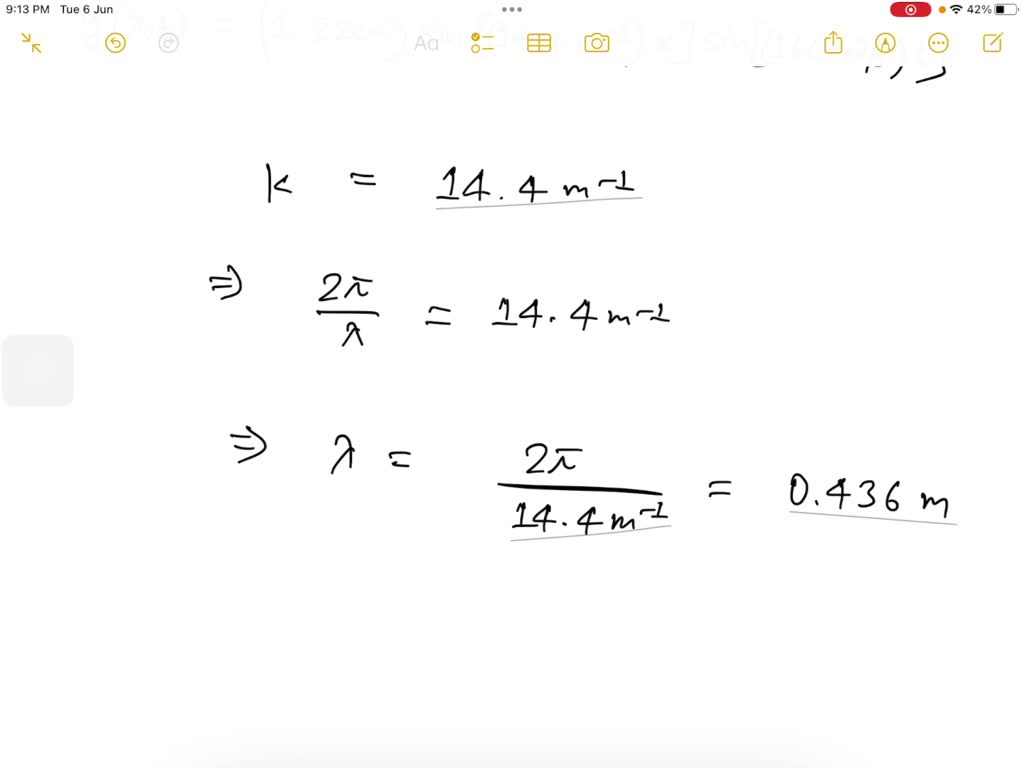 9:13 PM Tue 6 Jun
42%
Aa
k = 14.4 m⁻¹
⇒ 2π/λ = 14.4 m⁻¹
⇒ λ = 2π/14.4 m⁻¹ = 0.436 m